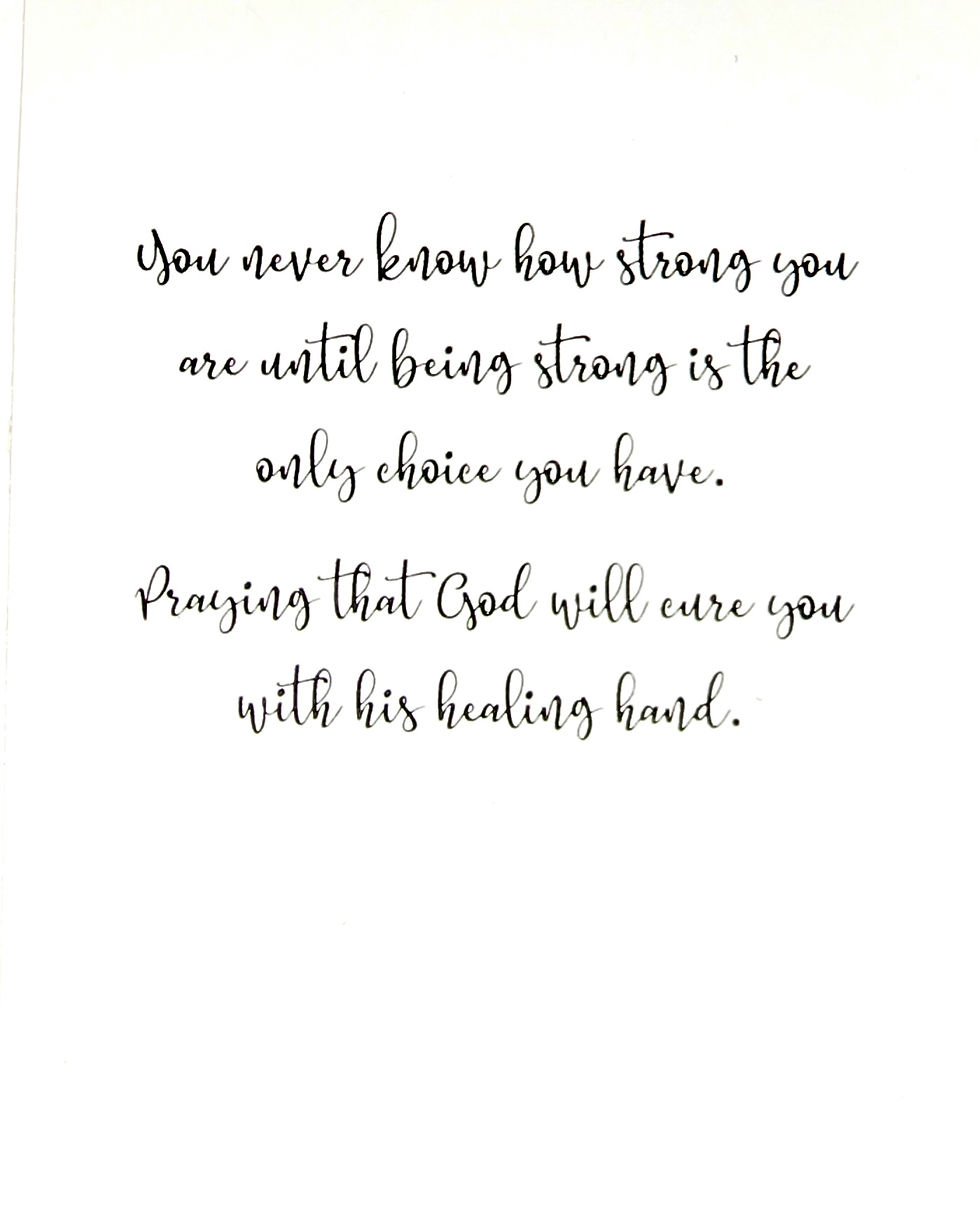 You never know how strong you
are until being strong is the
only choice you have.
Praying that God will cure you
with his healing hand.